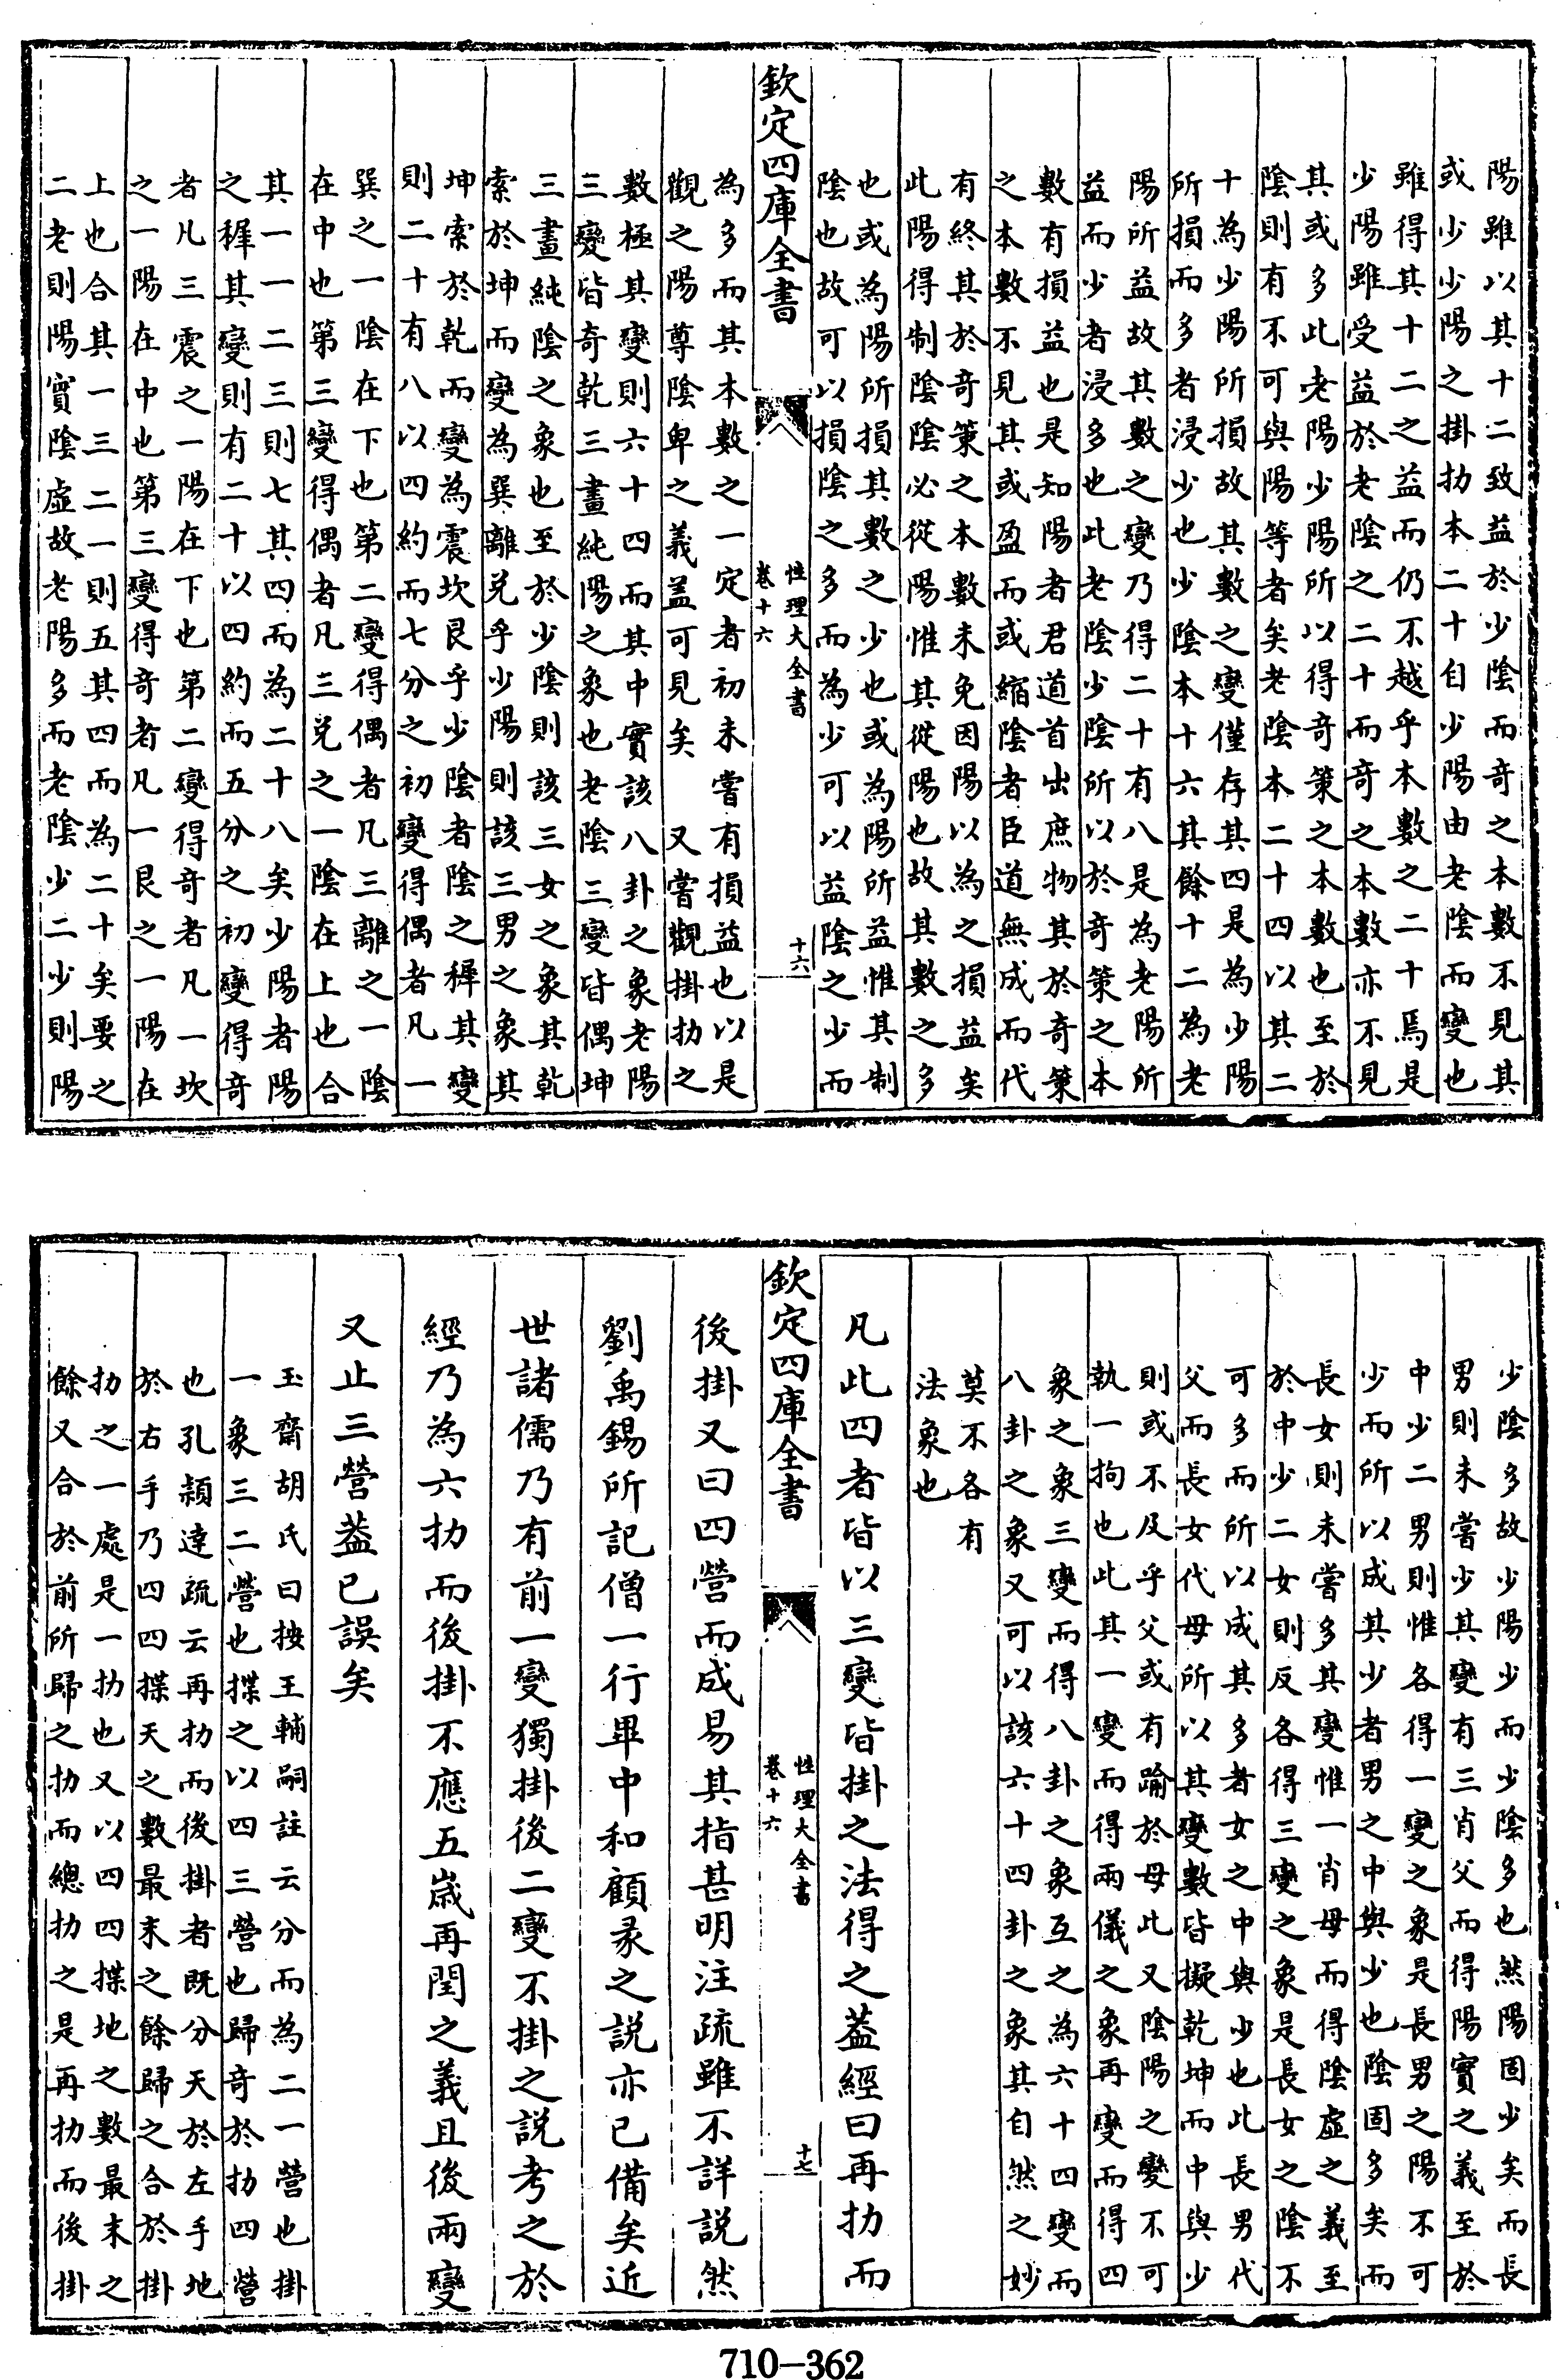 陽雖以其十二致益於少陰而奇之本數不見其
或少少陽之掛扐本二十自少陽由老陰而變也
雖得其十二之益而仍不越乎本數之二十焉是
少陽雖受益於老陰之二十而奇之本數亦不見
其或多此老陽少陽所以得奇策之本數也至於
陰則有不可與陽等者矣老陰本二十四以其二
十為少陽所損故其數之變僅存其四是為少陽
所損而多者浸少也少陰本十六其餘十二為老
陽所益故其數之變乃得二十有八是為老陽所
益而少者浸多也此老陰少陰所以於奇策之本
數有損益也是知陽者君道首出庶物其於奇策
之本數不見其或盈而或縮陰者臣道無成而代
有終其於奇策之本數未免因陽以為之損益矣
此陽得制陰陰必從陽惟其從陽也故其數之多
也或為陽所損其數之少也或為陽所益惟其制
陰也故可以損陰之多而為少可以益陰之少而
欽定四庫全書
性理大全書
卷十六
十六
為多而其本數之一定者初未嘗有損益也以是
觀之陽尊陰卑之義盖可見矣　又嘗觀掛扐之
數極其變則六十四而其中實該八卦之象老陽
三變皆奇乾三畫純陽之象也老陰三變皆偶坤
三畫純陰之象也至於少陰則該三女之象其乾
索於坤而變為巽離兌乎少陽則該三男之象其
坤索於乾而變為震坎艮乎少陰者陰之穉其變
則二十有八以四約而七分之初變得偶者凡一
巽之一陰在下也第二變得偶者凡三離之一陰
在中也第三變得偶者凡三兌之一陰在上也合
其一一二三則七其四而為二十八矣少陽者陽
之穉其變則有二十以四約而五分之初變得奇
者凡三震之一陽在下也第二變得奇者凡一坎
之一陽在中也第三變得奇者凡一艮之一陽在
上也合其一三二一則五其四而為二十矣要之
二老則陽實陰虛故老陽多而老陰少二少則陽
少陰多故少陽少而少陰多也然陽固少矣而長
男則未嘗少其變有三肖父而得陽實之義至於
中少二男則惟各得一變之象是長男之陽不可
少而所以成其少者男之中與少也陰固多矣而
長女則未嘗多其變惟一肖母而得陰虛之義至
於中少二女則反各得三變之象是長女之陰不
可多而所以成其多者女之中與少也此長男代
父而長女代母所以其變數皆擬乾坤而中與少
則或不及乎父或有踰於母此又陰陽之變不可
執一拘也此其一變而得兩儀之象再變而得四
象之象三變而得八卦之象互之為六十四變而
八卦之象又可以該六十四卦之象其自然之妙
莫不各有
法象也
凡此四者皆以三變皆掛之法得之盖經曰再扐而
欽定四庫全書
性理大全書
卷十六
十七
後掛又曰四營而成易其指甚明注疏雖不詳説然
劉禹錫所記僧一行畢中和顧彖之説亦已備矣近
世諸儒乃有前一變獨掛後二變不掛之説考之於
經乃為六扐而後掛不應五歲再閏之義且後兩變
又止三營盖已誤矣
玉齋胡氏曰按王輔嗣註云分而為二一營也掛
一象三二營也揲之以四三營也歸奇於扐四營
也孔穎達疏云再扐而後掛者既分天於左手地
於右手乃四四揲天之數最末之餘歸之合於掛
扐之一處是一扐也又以四四揲地之數最末之
餘又合於前所歸之扐而總扐之是再扐而後掛
710-362